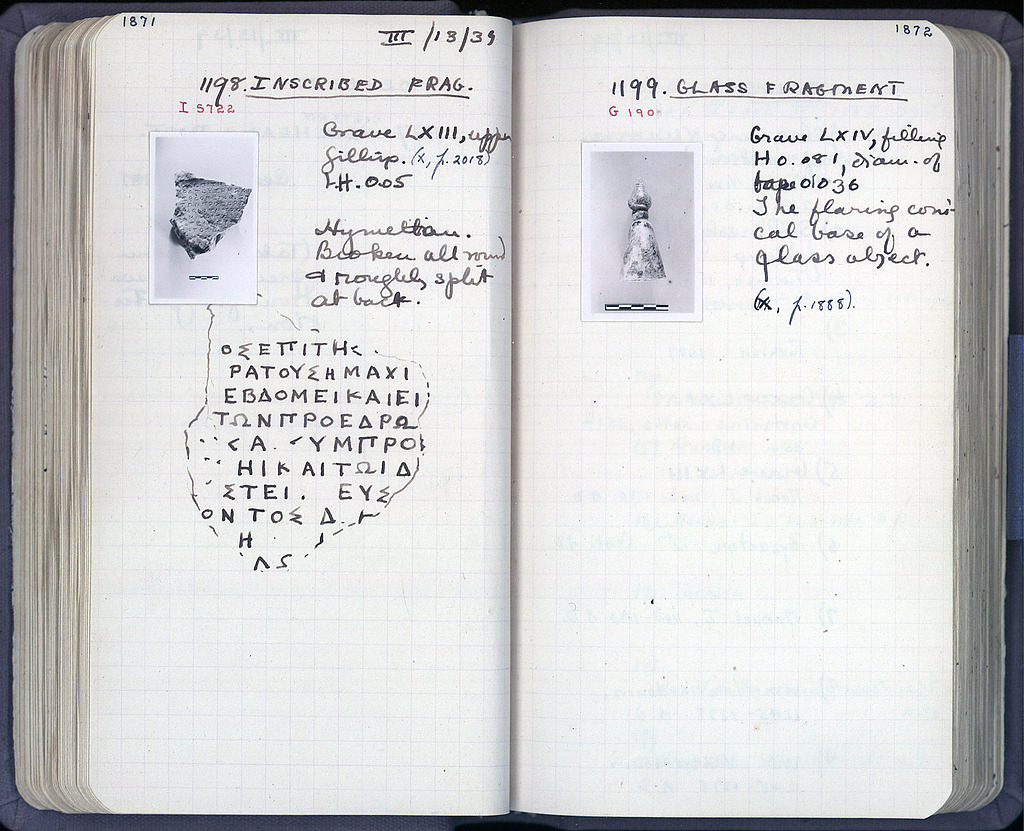 1871
III /13/39
1198. INSCRIBED FRAG.
I 5722
Grave LXIII, upper
filling. (X, p. 2018)
L.H. 0.05
Hymettian.
Broken all round
& roughly split
at back.
ΟΣΕΠΙΤΗ<.
ΡΑΤΟΥΣΗΜΑΧΙ
ΕΒΔΟΜΕΙΚΑΙΕΙ
ΤΩΝΠΡΟΕΔΡΩ
<Α. <ΥΜΠΡΟ
ΗΙΚΑΙΤΩΙΔ
ΣΤΕΙ. ΕΥΣ
ΟΝΤΟΣ Δ.
Η
ΛΣ
1872
1199. GLASS FRAGMENT
G 190
Grave LXIV, filling
H 0.081, diam. of
base 0.036
The flaring coni-
cal base of a
glass object.
(X, p. 1888).